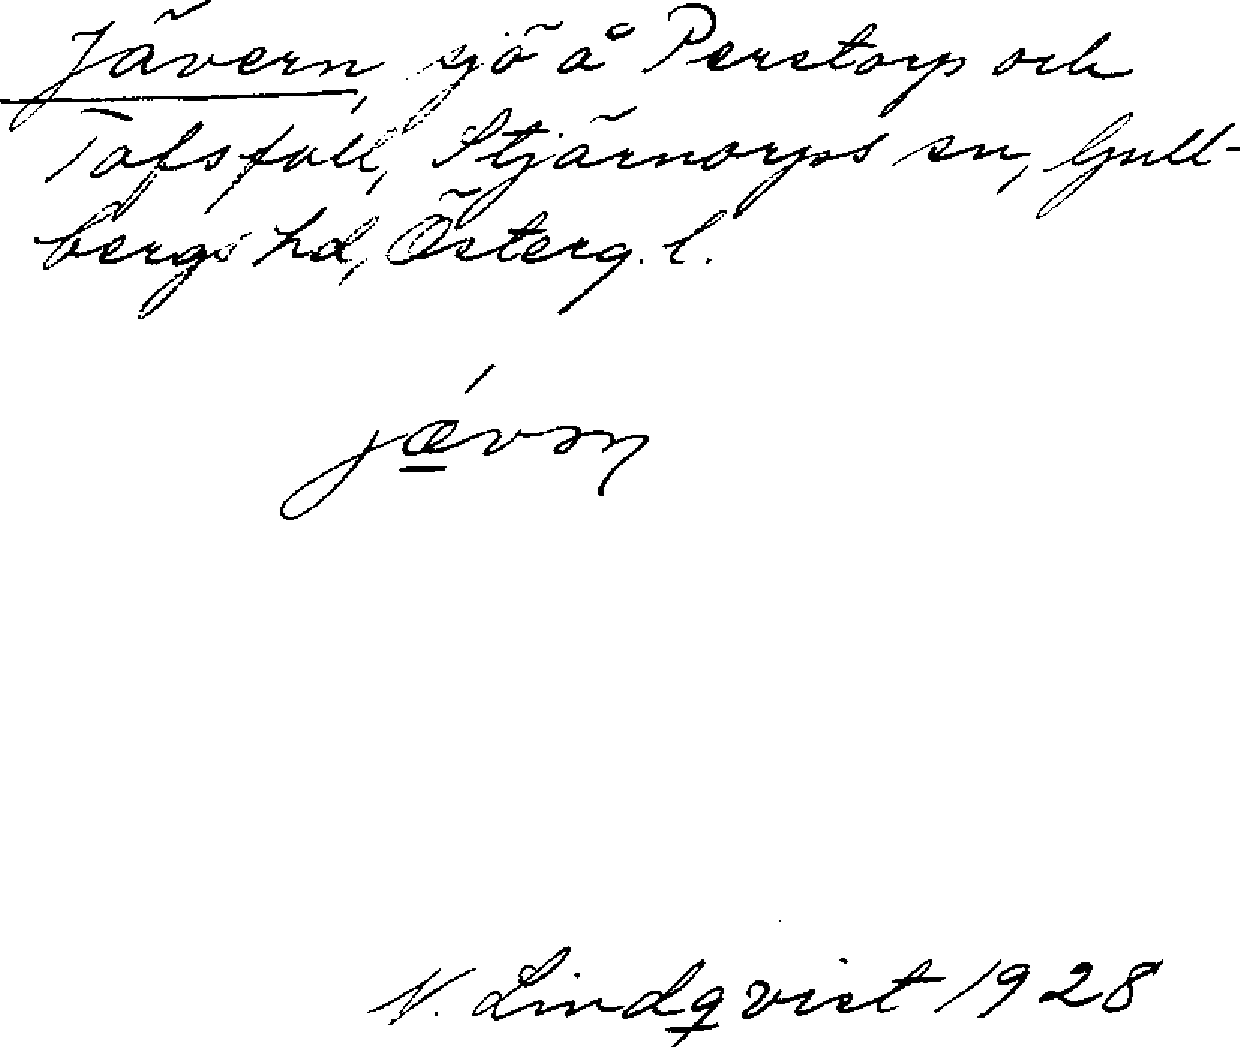 Jävern, sjö å Perstorp och
Tofsfall, Stjärnorps sn, Gull-
bergs hd, Österg. l.
N. Lindqvist 1928